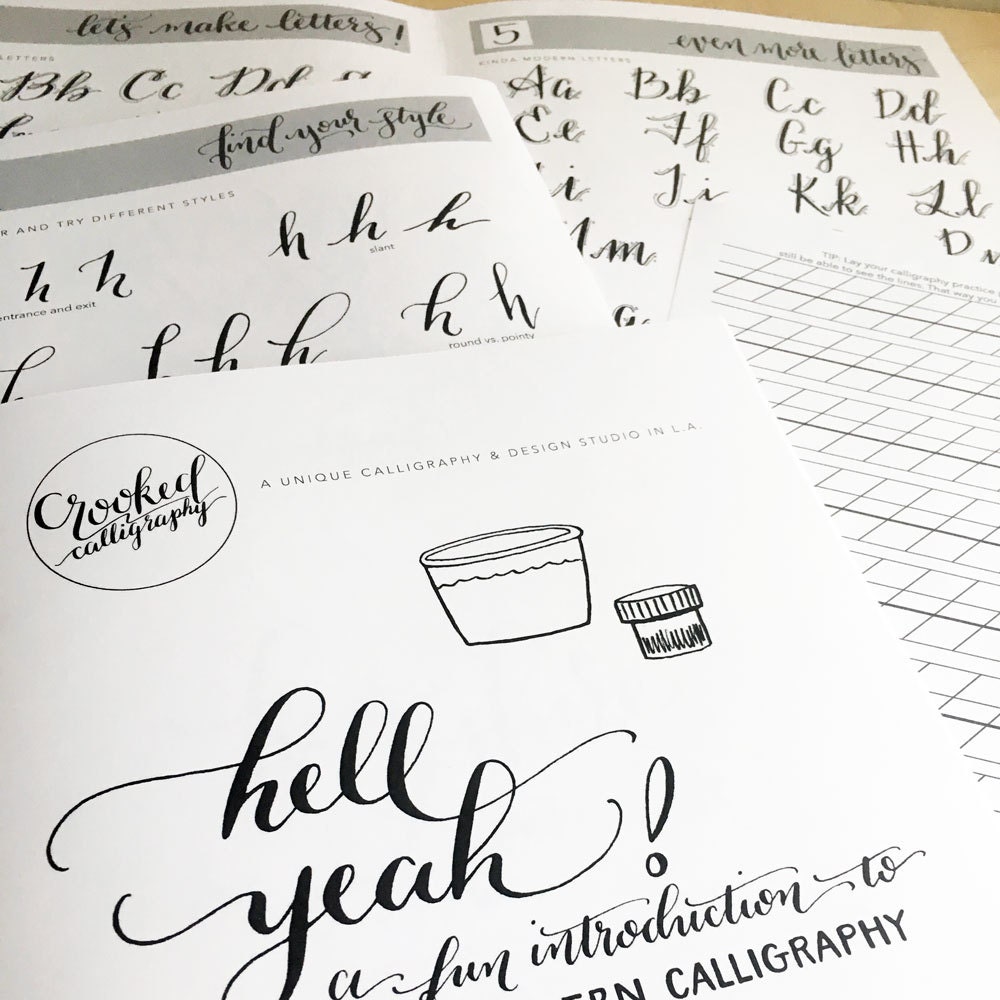 let's make letters!
LETTERS
Bb Cc Dd
5
even more letters
KINDA MODERN LETTERS
Aa Bb Cc Dd
Ee Ff Gg Hh
i Jj Kk Ll
m
D
TIP: Lay your calligraphy practice
still be able to see the lines. That way you
find your style
R AND TRY DIFFERENT STYLES
h h h
slant
h h
entrance and exit
h h h
h h
round vs. pointy
crooked
calligraphy
A UNIQUE CALLIGRAPHY & DESIGN STUDIO IN L.A.
hell
yeah!
a fun introduction to
ERN CALLIGRAPHY